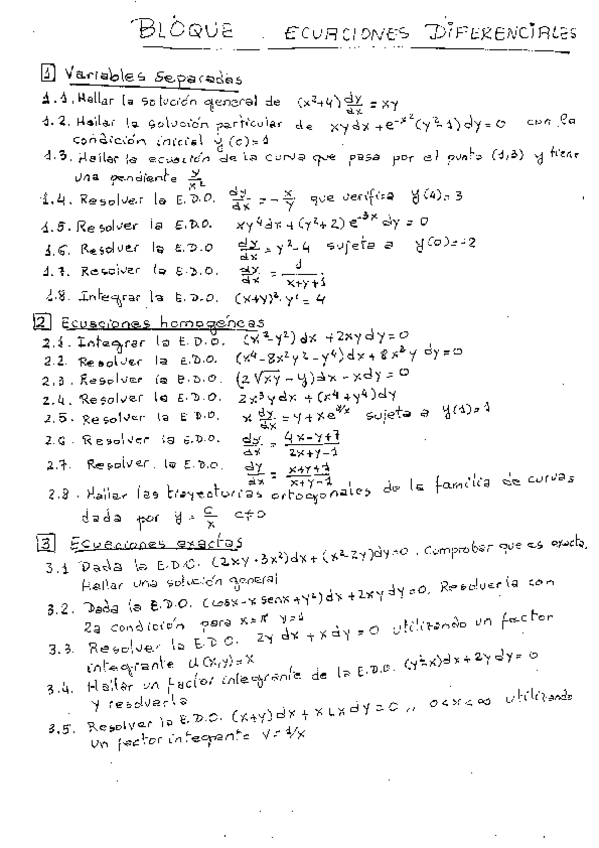 BLOQUE . ECUACIONES DIFERENCIALES
1 Variables Separadas
1.1. Hallar la solución general de (x²+4) dy/dx = xy
1.2. Hallar la solución particular de xydx + e^-x² (y²-1) dy = 0 con la
condición inicial y(0)=1
1.3. Hallar la ecuación de la curva que pasa por el punto (1,3) y tiene
una pendiente y/x²
1.4. Resolver la E.D.O. dy/dx = - x/y que verifica y(4)=3
1.5. Resolver la E.D.O. xy⁴dx + (y²+2) e^-3x dy = 0
1.6. Resolver la E.D.O dy/dx = y²-4 sujeta a y(0)=-2
1.7. Resolver la E.D.O. dy/dx = 1/(x+y+1)
1.8. Integrar la E.D.O. (x+y)² y' = 4
2 Ecuaciones homogéneas
2.1. Integrar la E.D.O. (x²-y²) dx + 2xydy=0
2.2. Resolver la E.D.O. (x⁴-8x²y²-y⁴)dx + 8x³y dy=0
2.3. Resolver la E.D.O. (2√xy - y)dx - xdy = 0
2.4. Resolver la E.D.O. 2x³ydx + (x⁴+y⁴)dy
2.5. Resolver la E.D.O. x dy/dx = y + xe^y/x sujeta a y(1)=1
2.6. Resolver la E.D.O. dy/dx = (4x-y+7)/(2x+y-1)
2.7. Resolver la E.D.O. dy/dx = (x+y+1)/(x+y-1)
2.8. Hallar las trayectorias ortogonales de la familia de curvas
dada por y = c/x c≠0
3 Ecuaciones exactas
3.1 Dada la E.D.O. (2xy+3x²)dx + (x²-2y)dy=0. Comprobar que es exacta.
Hallar una solución general
3.2. Dada la E.D.O. (cosx - x senx + y²)dx + 2xydy=0. Resolverla con
la condición para x=π y=1
3.3. Resolver la E.D.O. 2y dx + xdy = 0 utilizando un factor
integrante U(x,y)=x
3.4. Hallar un factor integrante de la E.D.O. (y²-x)dx + 2y dy = 0
y resolverla
3.5. Resolver la E.D.O. (x+y)dx + xLxdy=0 ,, 0<x<∞ utilizando
un factor integrante V=1/x